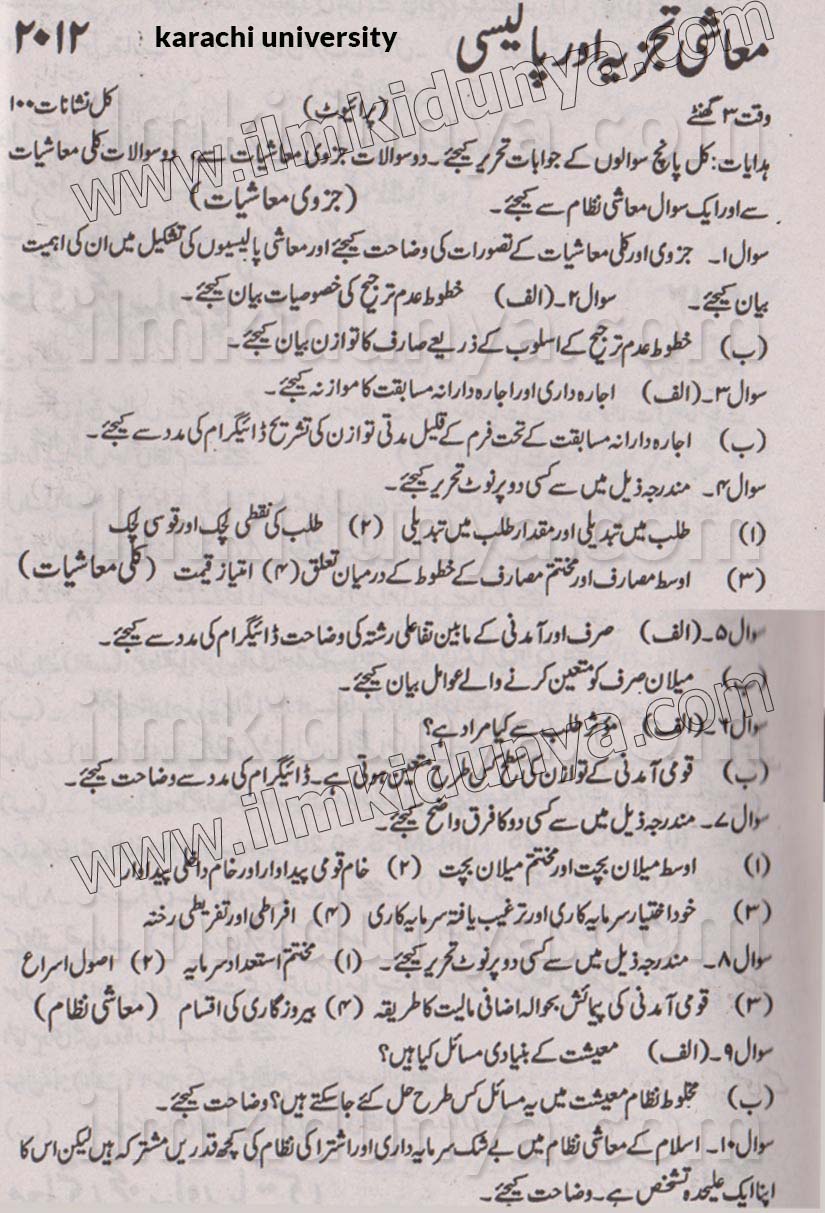 معاشی تجزیہ اور پالیسی karachi university ۲۰۱۲
وقت ۳ گھنٹے (پرائیوٹ) کل نشانات ۱۰۰
ہدایات: کل پانچ سوالوں کے جوابات تحریر کیجئے۔ دو سوالات جزوی معاشیات سے، دو سوالات کلی معاشیات
سے اور ایک سوال معاشی نظام سے کیجئے۔ (جزوی معاشیات)
سوال ۱۔ جزوی اور کلی معاشیات کے تصورات کی وضاحت کیجئے اور معاشی پالیسیوں کی تشکیل میں ان کی اہمیت
بیان کیجئے۔ سوال ۲۔ (الف) خطوط عدم ترجیح کی خصوصیات بیان کیجئے۔
(ب) خطوط عدم ترجیح کے اسلوب کے ذریعے صارف کا توازن بیان کیجئے۔
سوال ۳۔ (الف) اجارہ داری اور اجارہ دارانہ مسابقت کا موازنہ کیجئے۔
(ب) اجارہ دارانہ مسابقت کے تحت فرم کے قلیل مدتی توازن کی تشریح ڈائیگرام کی مدد سے کیجئے۔
سوال ۴۔ مندرجہ ذیل میں سے کسی دو پر نوٹ تحریر کیجئے۔
(۱) طلب میں تبدیلی اور مقدار طلب میں تبدیلی (۲) طلب کی نقطی لچک اور قوسی لچک
(۳) اوسط مصارف اور مختتم مصارف کے خطوط کے درمیان تعلق (۴) امتیاز قیمت (کلی معاشیات)
سوال ۵۔ (الف) صرف اور آمدنی کے مابین تفاعلی رشتہ کی وضاحت ڈائیگرام کی مدد سے کیجئے۔
(ب) میلان صرف کو متعین کرنے والے عوامل بیان کیجئے۔
سوال ۶۔ (الف) مؤثر طلب سے کیا مراد ہے؟
(ب) قومی آمدنی کے توازن کی سطح کس طرح متعین ہوتی ہے۔ ڈائیگرام کی مدد سے وضاحت کیجئے۔
سوال ۷۔ مندرجہ ذیل میں سے کسی دو کا فرق واضح کیجئے۔
(۱) اوسط میلان بچت اور مختتم میلان بچت (۲) خام قومی پیداوار اور خام داخلی پیداوار
(۳) خود اختیار سرمایہ کاری اور ترغیب یافتہ سرمایہ کاری (۴) افراطی اور تفریطی رخنہ
سوال ۸۔ مندرجہ ذیل میں سے کسی دو پر نوٹ تحریر کیجئے۔ (۱) مختتم استعداد سرمایہ (۲) اصول اسراع
(۳) قومی آمدنی کی پیمائش بحوالہ اضافی مالیت کا طریقہ (۴) بیروزگاری کی اقسام (معاشی نظام)
سوال ۹۔ (الف) معیشت کے بنیادی مسائل کیا ہیں؟
(ب) مخلوط نظام معیشت میں یہ مسائل کس طرح حل کئے جاسکتے ہیں؟ وضاحت کیجئے۔
سوال ۱۰۔ اسلام کے معاشی نظام میں بے شک سرمایہ داری اور اشتراکی نظام کی کچھ قدریں مشترکہ ہیں لیکن اس کا
اپنا ایک علیحدہ تشخص ہے۔ وضاحت کیجئے۔
www.ilmkidunya.com
ilmkidunya.com
ilmkidunya.com
ilmkidunya.com
ilmkidunya.com
www.ilmkidunya.com
ilmkidunya.com
ilmkidunya.com